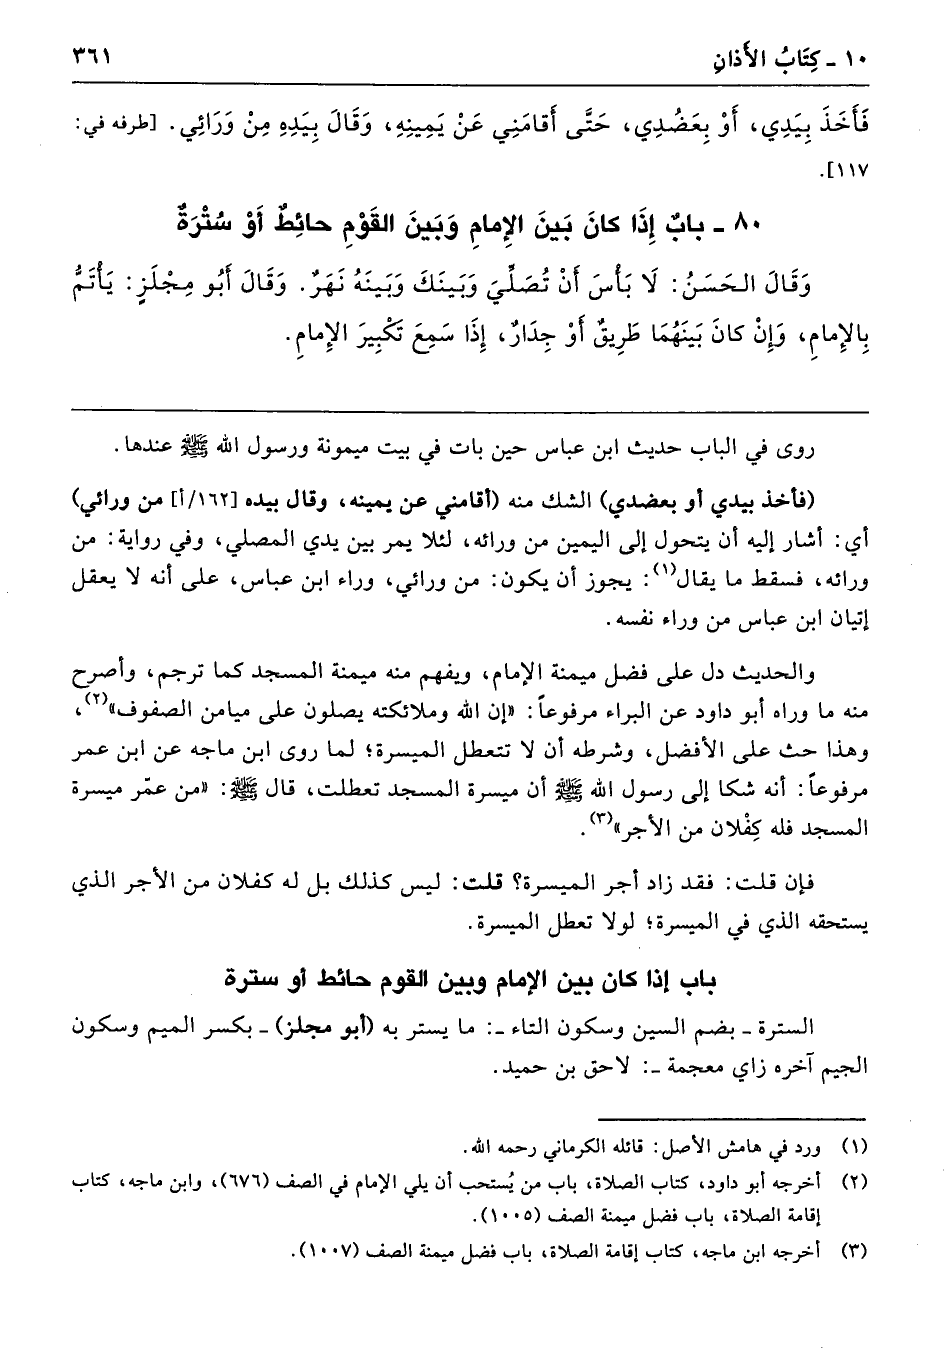 ١٠ - كِتَابُ الأَذانِ
٣٦١
فَأَخَذَ بِيَدِي، أَوْ بِعَضُدِي، حَتَّى أَقامَنِي عَنْ يَمِينِهِ، وَقَالَ بِيَدِهِ مِنْ وَرَائِي. [طرفه في:
١١٧].
٨٠ - بابٌ إِذَا كانَ بَينَ الإِمامِ وَبَينَ القَوْمِ حائِطٌ أَوْ سُتْرَةٌ
وَقَالَ الحَسَنُ: لَا بَأْسَ أَنْ تُصَلِّيَ وَبَينَكَ وَبَينَهُ نَهَرٌ. وَقَالَ أَبُو مِجْلَزٍ: يَأْتَمُّ
بِالإِمامِ، وَإِنْ كانَ بَينَهُمَا طَرِيقٌ أَوْ جِدَارٌ، إِذَا سَمِعَ تَكْبِيرَ الإِمامِ.
روى في الباب حديث ابن عباس حين بات في بيت ميمونة ورسول الله ﷺ عندها.
(فأخذ بيدي أو بعضدي) الشك منه (أقامني عن يمينه، وقال بيده [١٦٢/أ] من ورائي)
أي: أشار إليه أن يتحول إلى اليمين من ورائه، لئلا يمر بين يدي المصلي، وفي رواية: من
ورائه، فسقط ما يقال(١): يجوز أن يكون: من ورائي، وراء ابن عباس، على أنه لا يعقل
إتيان ابن عباس من وراء نفسه.
والحديث دل على فضل ميمنة الإمام، ويفهم منه ميمنة المسجد كما ترجم، وأصرح
منه ما وراه أبو داود عن البراء مرفوعاً: «إن الله وملائكته يصلون على ميامن الصفوف»(٢)،
وهذا حث على الأفضل، وشرطه أن لا تتعطل الميسرة؛ لما روى ابن ماجه عن ابن عمر
مرفوعاً: أنه شكا إلى رسول الله ﷺ أن ميسرة المسجد تعطلت، قال ﷺ: «من عمّر ميسرة
المسجد فله كِفْلان من الأجر»(٣).
فإن قلت: فقد زاد أجر الميسرة؟ قلت: ليس كذلك بل له كفلان من الأجر الذي
يستحقه الذي في الميسرة؛ لولا تعطل الميسرة.
باب إذا كان بين الإمام وبين القوم حائط أو سترة
السترة - بضم السين وسكون التاء -: ما يستر به (أبو مجلز) - بكسر الميم وسكون
الجيم آخره زاي معجمة -: لاحق بن حميد.
(١) ورد في هامش الأصل: قائله الكرماني رحمه الله.
(٢) أخرجه أبو داود، كتاب الصلاة، باب من يُستحب أن يلي الإمام في الصف (٦٧٦)، وابن ماجه، كتاب
إقامة الصلاة، باب فضل ميمنة الصف (١٠٠٥).
(٣) أخرجه ابن ماجه، كتاب إقامة الصلاة، باب فضل ميمنة الصف (١٠٠٧).